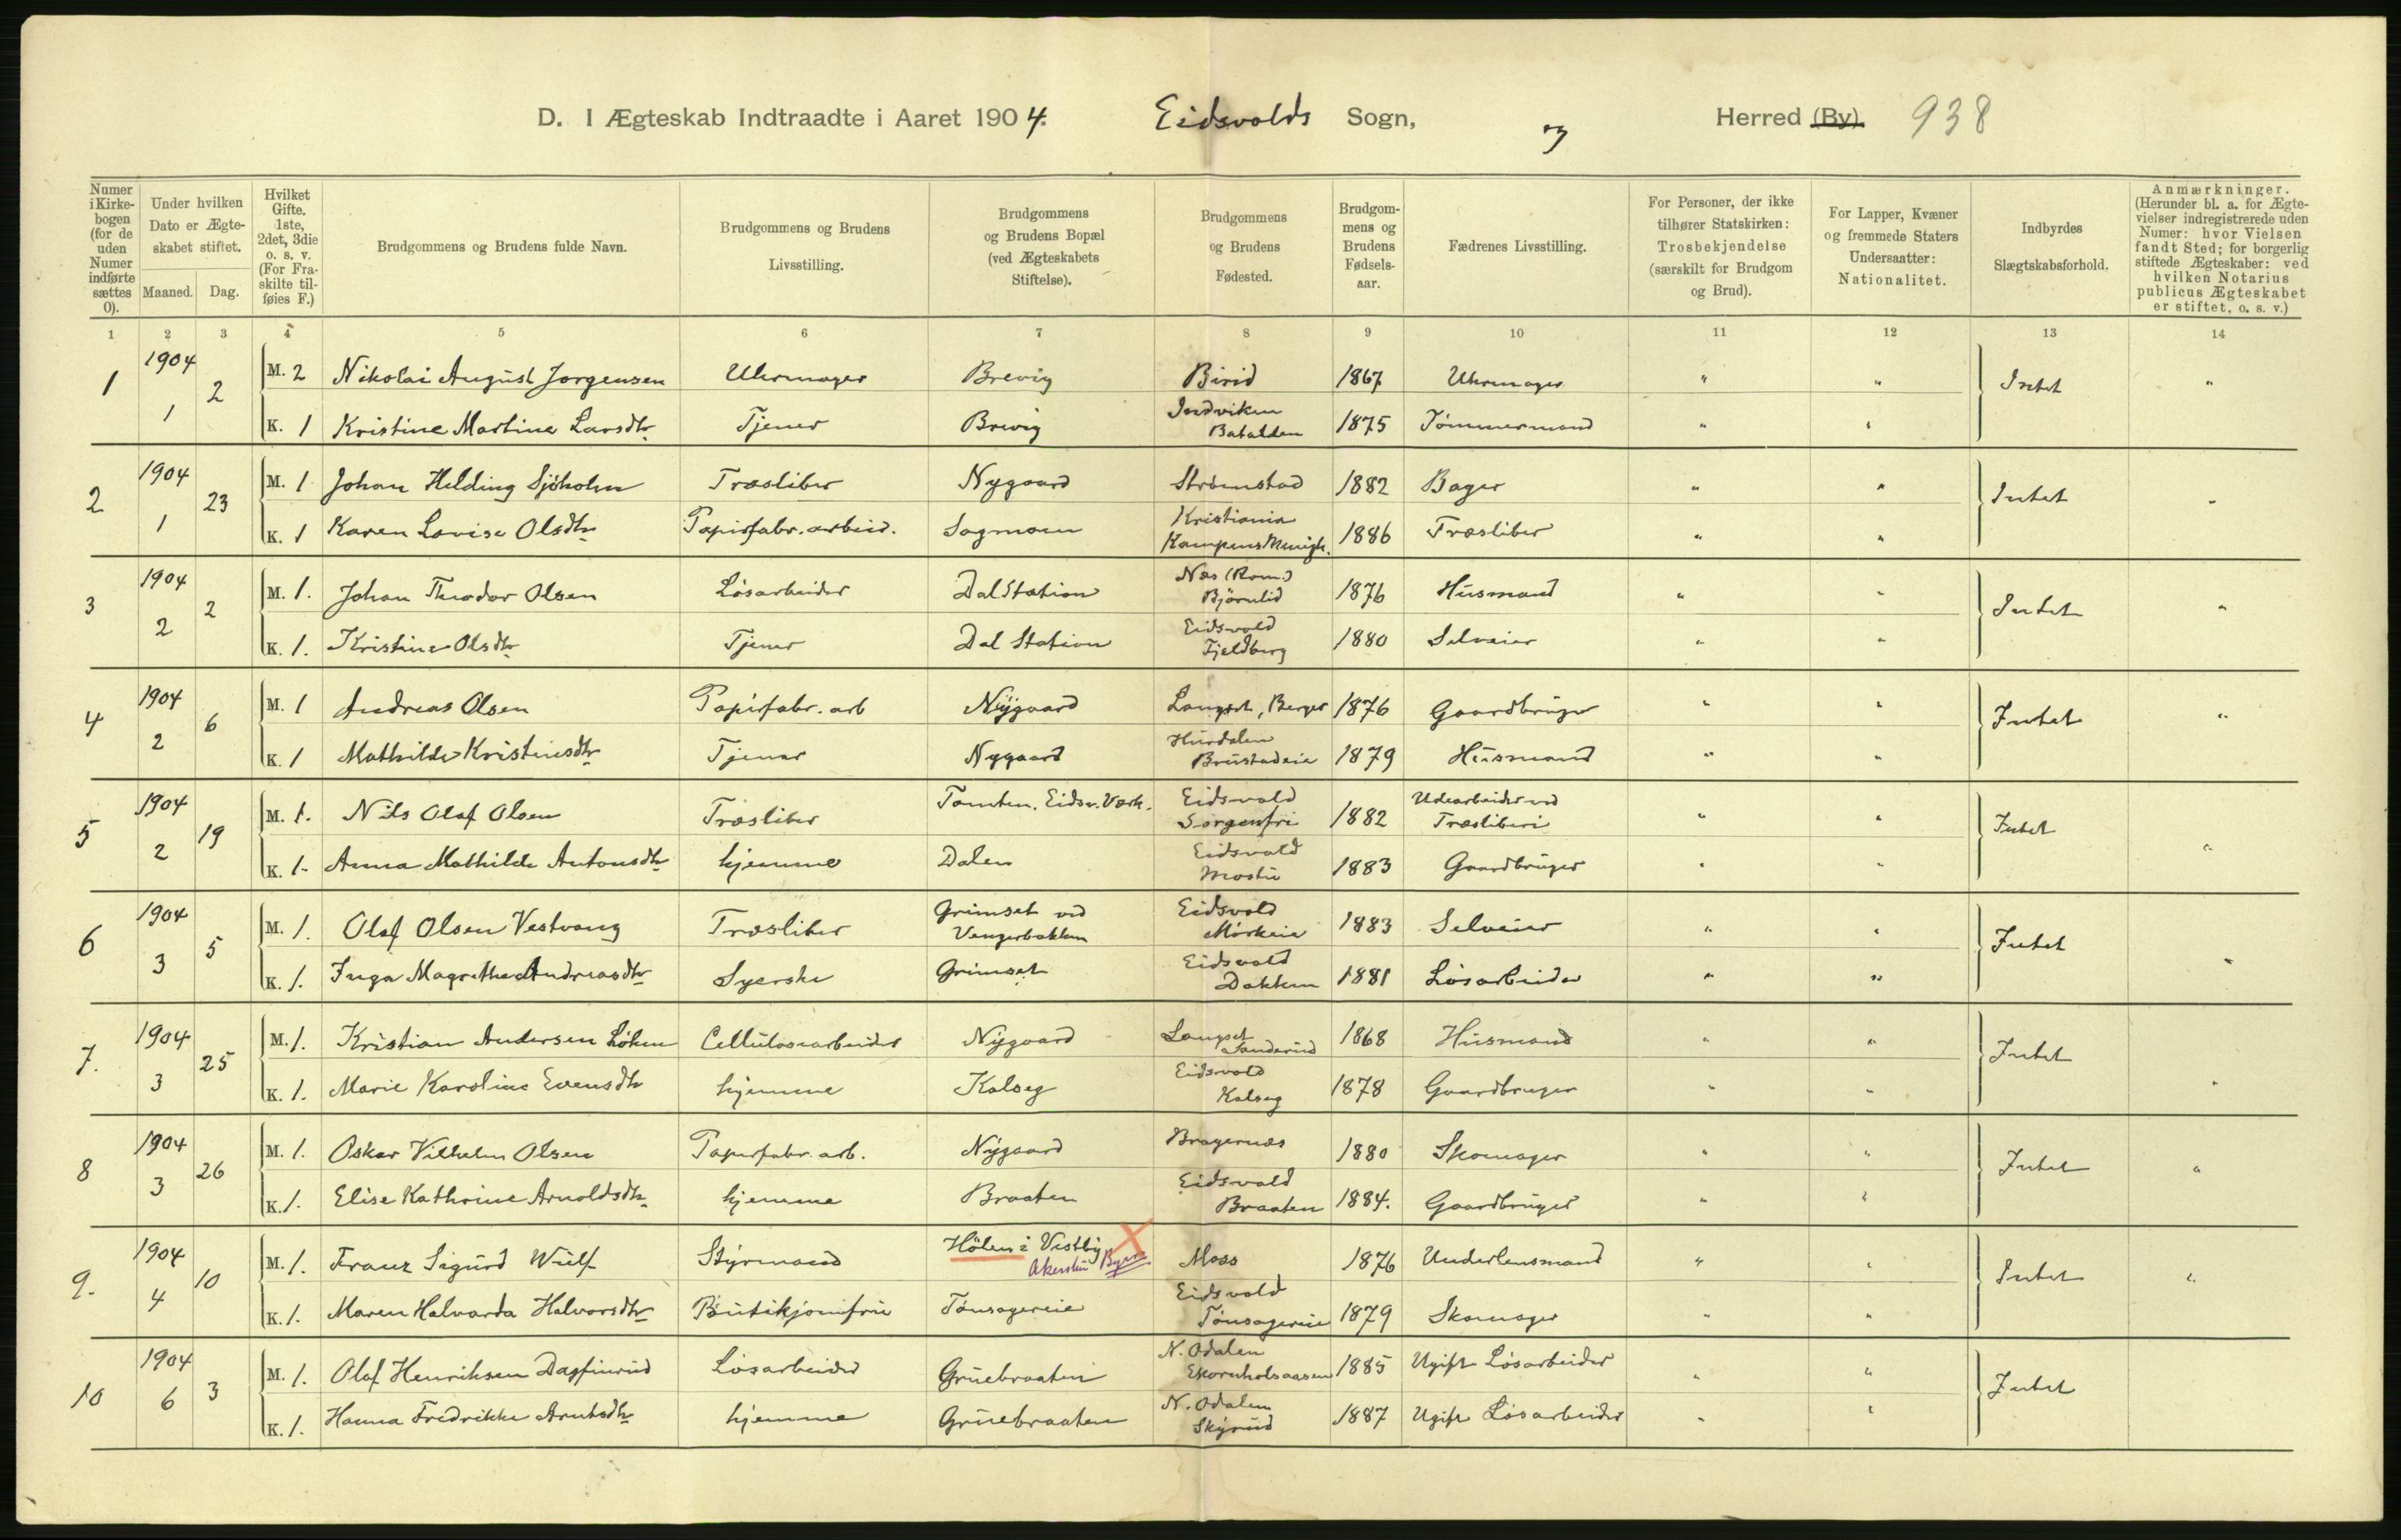 D. I Ægteskab Indtraadte i Aaret 1904. Eidsvolds Sogn, Herred (By) 938
Numer i Kirkebogen (for de uden Numer indførte sættes 0).
Under hvilken Dato er Ægteskabet stiftet.
Maaned. Dag.
Hvilket Gifte. 1ste, 2det, 3die o. s. v. (For Fraskilte tilføies F.)
Brudgommens og Brudens fulde Navn.
Brudgommens og Brudens Livsstilling.
Brudgommens og Brudens Bopæl (ved Ægteskabets Stiftelse).
Brudgommens og Brudens Fødested.
Brudgommens og Brudens Fødselsaar.
Fædrenes Livsstilling.
For Personer, der ikke tilhører Statskirken: Trosbekjendelse (særskilt for Brudgom og Brud).
For Lapper, Kvæner og fremmede Staters Undersaatter: Nationalitet.
Indbyrdes Slægtskabsforhold.
Anmærkninger. (Herunder bl. a. for Ægtevielser indregistrerede uden Numer: hvor Vielsen fandt Sted; for borgerlig stiftede Ægteskaber: ved hvilken Notarius publicus Ægteskabet er stiftet, o. s. v.)
1 2 3 4 5 6 7 8 9 10 11 12 13 14
1 1904 1 2 M. 2 Nikolai August Jorgensen Uhrmager Brevig Birid 1867 Uhrmager " " Intet "
K. 1 Kristine Martine Larsdtr Tjener Brevig Indviken Batalden 1875 Tömmermand " "
2 1904 1 23 M. 1 Johan Helding Sjöholm Træsliber Nygaard Strömstad 1882 Bager " " Intet "
K. 1 Karen Lovise Olsdtr Papirfabr. arbeid. Sagmoen Kristiania Kampens Menigh. 1886 Træsliber " "
3 1904 2 2 M. 1. Johan Theodor Olsen Lösarbeider Dal Station Næs (Rom.) Björnlid 1876 Husmand " " Intet "
K. 1. Kristine Olsdtr Tjener Dal Station Eidsvold Fjeldberg 1880 Selveier " "
4 1904 2 6 M. 1 Andreas Olsen Papirfabr. arb Nygaard Langset, Berger 1876 Gaardbruger " " Intet "
K. 1 Mathilde Kristensdtr Tjener Nygaard Hurdalen Brustadeie 1879 Husmand " "
5 1904 2 19 M. 1. Nils Olaf Olsen Træsliber Tomten. Eidsv. Værk. Eidsvold Sorgenfri 1882 Udearbeider ved Træsliberi " " Intet "
K. 1. Anna Mathilde Antonsdtr hjemme Dalen Eidsvold 1883 Gaardbruger " "
6 1904 3 5 M. 1. Olaf Olsen Vestvang Træsliber Grimset ved Vengerbakken Eidsvold Mörkeie 1883 Selveier " " Intet "
K. 1. Inga Magrethe Andreasdtr Syerske Grimset Eidsvold Dokken 1881 Lösarbeider " "
7. 1904 3 25 M. 1. Kristian Andersen Löken Cellulosearbeider Nygaard Langset Sanderud 1868 Husmand " " Intet "
K. 1. Marie Karoline Evensdtr hjemme Kalseg Eidsvold Kalseg 1878 Gaardbruger " "
8 1904 3 26 M. 1. Oskar Vilhelm Olsen Papirfabr. arb. Nygaard Bragernæs 1880 Skomager " " Intet "
K. 1. Elise Kathrine Arnoldsdtr hjemme Braaten Eidsvold Braaten 1884. Gaardbruger " "
9. 1904 4 10 M. 1. Franz Sigurd Wulf Styrmand Hölen i Vestby Akershus Moss 1876 Underlensmand " " Intet "
K. 1. Maren Halvarda Halvorsdtr Butikjomfru Tönsagereie Eidsvold Tönsagereie 1879 Skomager " "
10 1904 6 3 M. 1. Olaf Henriksen Dagfinrud Lösarbeider Gruebraaten N. Odalen Ekornholsaasen 1885 Ugift Lösarbeider " " Intet
K. 1. Hanna Fredrikke Arntsdtr hjemme Gruebraaten N. Odalen Skyrud 1887 Ugift Lösarbeider " "